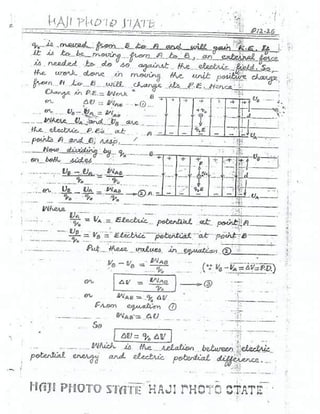 HAJI PHOTO STATE
P12-26
q₀ is moved from B to A and will gain K.E. If
it is to be moving from A to B, an external force
is needed to do so against the electric field. So,
the work done in moving the unit positive charge
from A to B will change its P.E. Hence
Change in P.E = Work
or ΔU = W_AB —①
or U_B - U_A = W_AB
Where U_A and U_B are
the electric P.Es at
points A and B, resp.
Now dividing by q₀
on both sides
U_B - U_A / q₀ = W_AB / q₀
or U_B / q₀ - U_A / q₀ = W_AB / q₀ —②
Where
U_A / q₀ = V_A = Electric potential at point A
U_B / q₀ = V_B = Electric potential at point B
Put these values in equation ②
V_B - V_A = W_AB / q₀ (∵ V_B - V_A = ΔV = P.D.)
or ΔV = W_AB / q₀ —③
or W_AB = q₀ ΔV
From equation ①
W_AB = ΔU
So
ΔU = q₀ ΔV
Which is the relation between electric
potential energy and electric potential difference.
HAJI PHOTO STATE HAJI PHOTO STATE